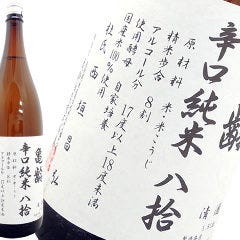 亀齢
辛口純米 八拾
齢
辛口純米 八拾
原材料 米・米こうじ
精米歩合 8割
アルコール分 17度以上18度未満
使用酵母 自家培養
国産米100%使用
杜氏 西垣昌弘